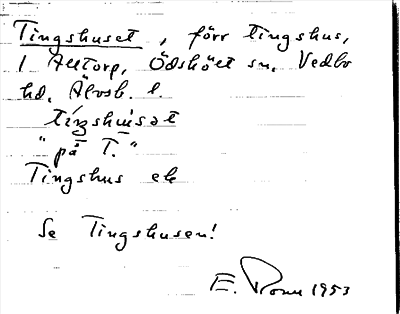 Tingshuset, förr tingshus,
i Alltorp, Ödskölt sn. Vedbo
hd, Älvsb. l.
tíŋshùsət
"på T."
Tingshus ek
Se Tingshusen!
E. 1953